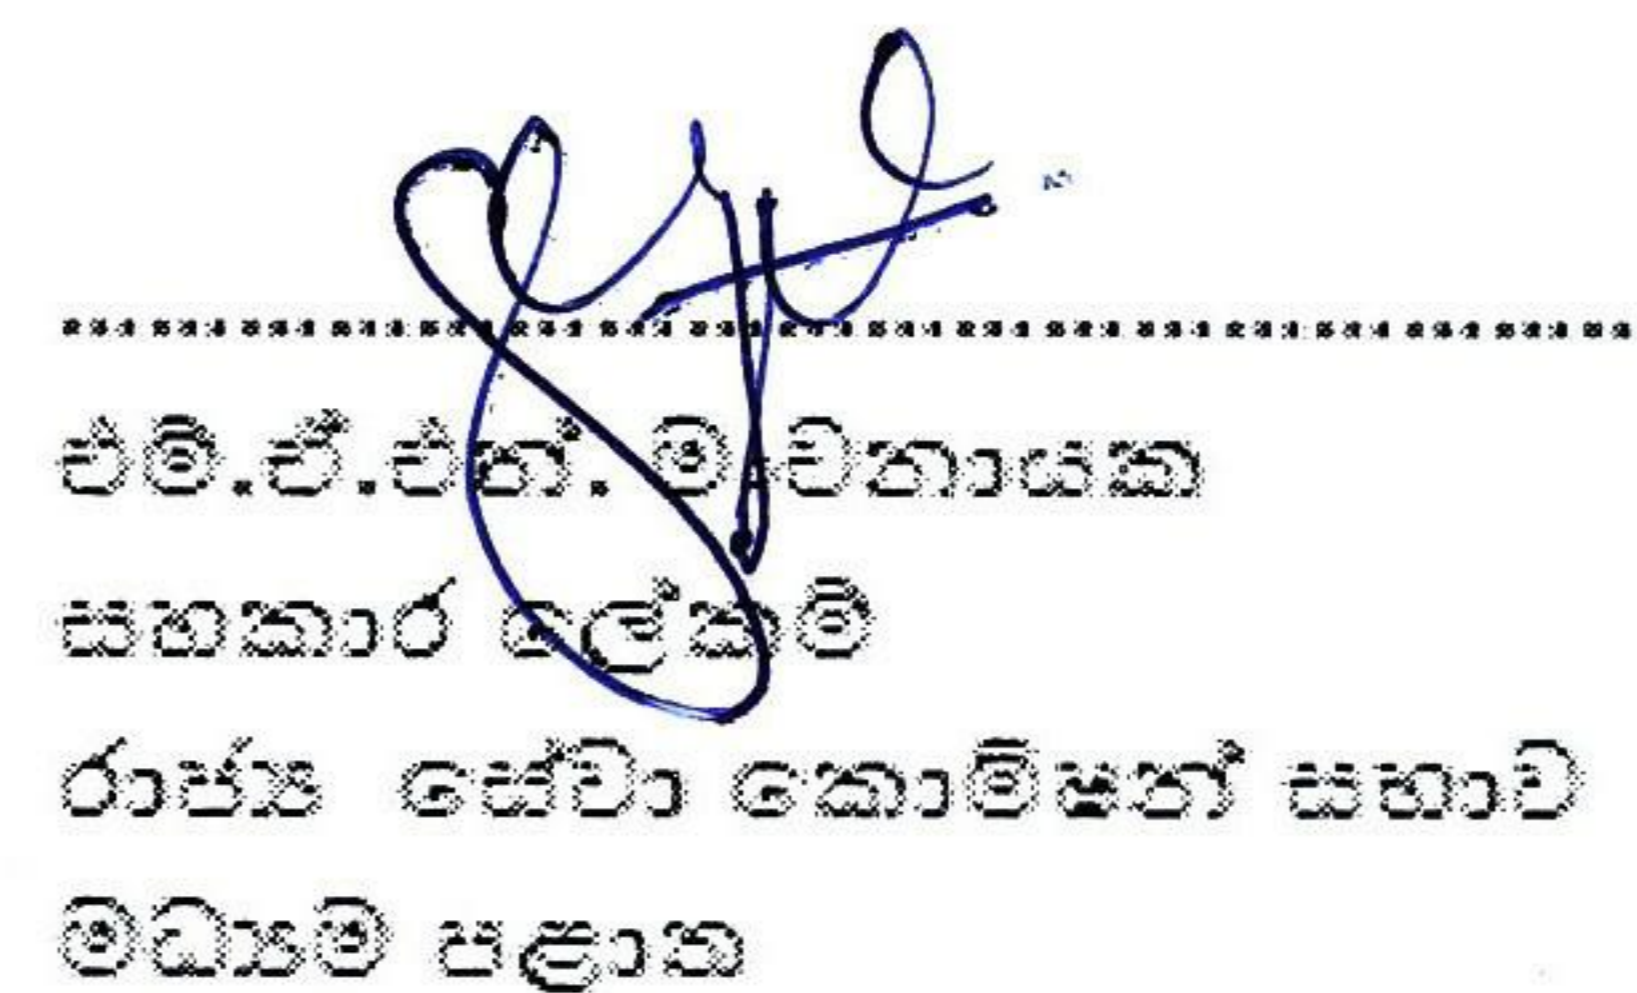 එම්.ඒ.එන්. මාවනායක
සහකාර ලේකම්
රාජ්‍ය සේවා කොමිෂන් සභාව
මධ්‍යම පළාත